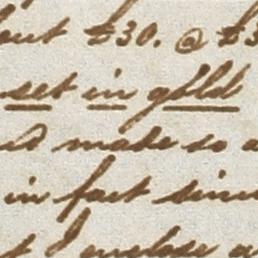 but £30. @ £3
set in gold
made so a
in fact since
I enclose a